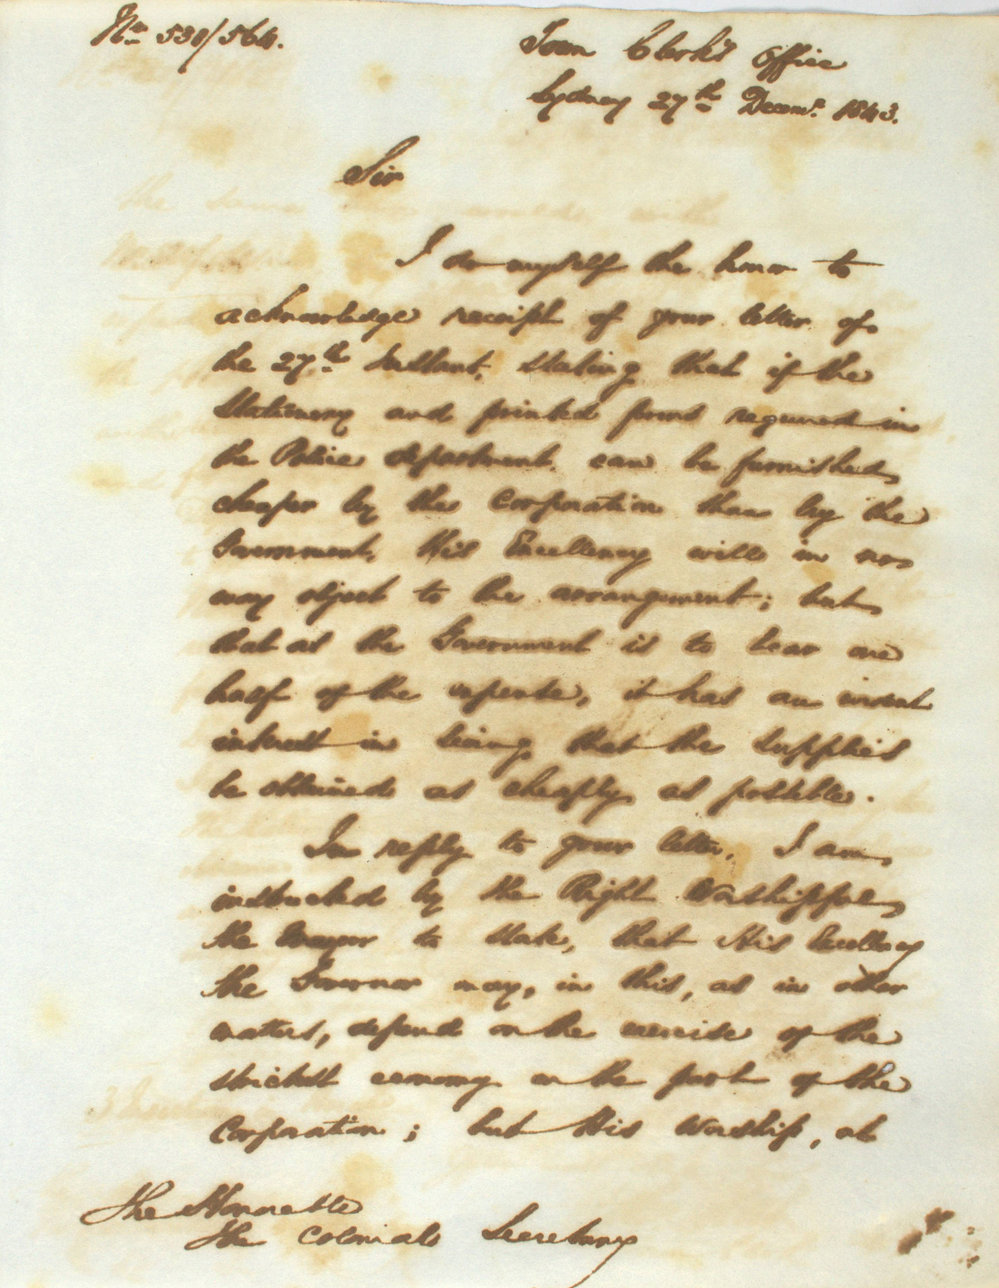 No 530/564.
Town Clerk's Office
Sydney 27th Decemr. 1843.
Sir
I do myself the honor to
acknowledge receipt of your letter of
the 27th Instant, stating that if the
Stationery and printed forms required in
the Police department can be furnished
cheaper by the Corporation than by the
Government, His Excellency will in no
way object to the arrangement; but
that as the Government is to bear one
half of the expense, it has an
interest in seeing that the supplies
be obtained as cheaply as possible.
In reply to your letter, I am
instructed by the Right Worshipful
the Mayor to state, that His Excellency
the Governor may, in this, as in other
matters, depend on the exercise of the
strictest economy on the part of the
Corporation; but His Worship, at
The Honorable
The Colonial Secretary